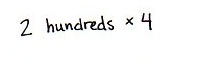 2 hundreds × 4